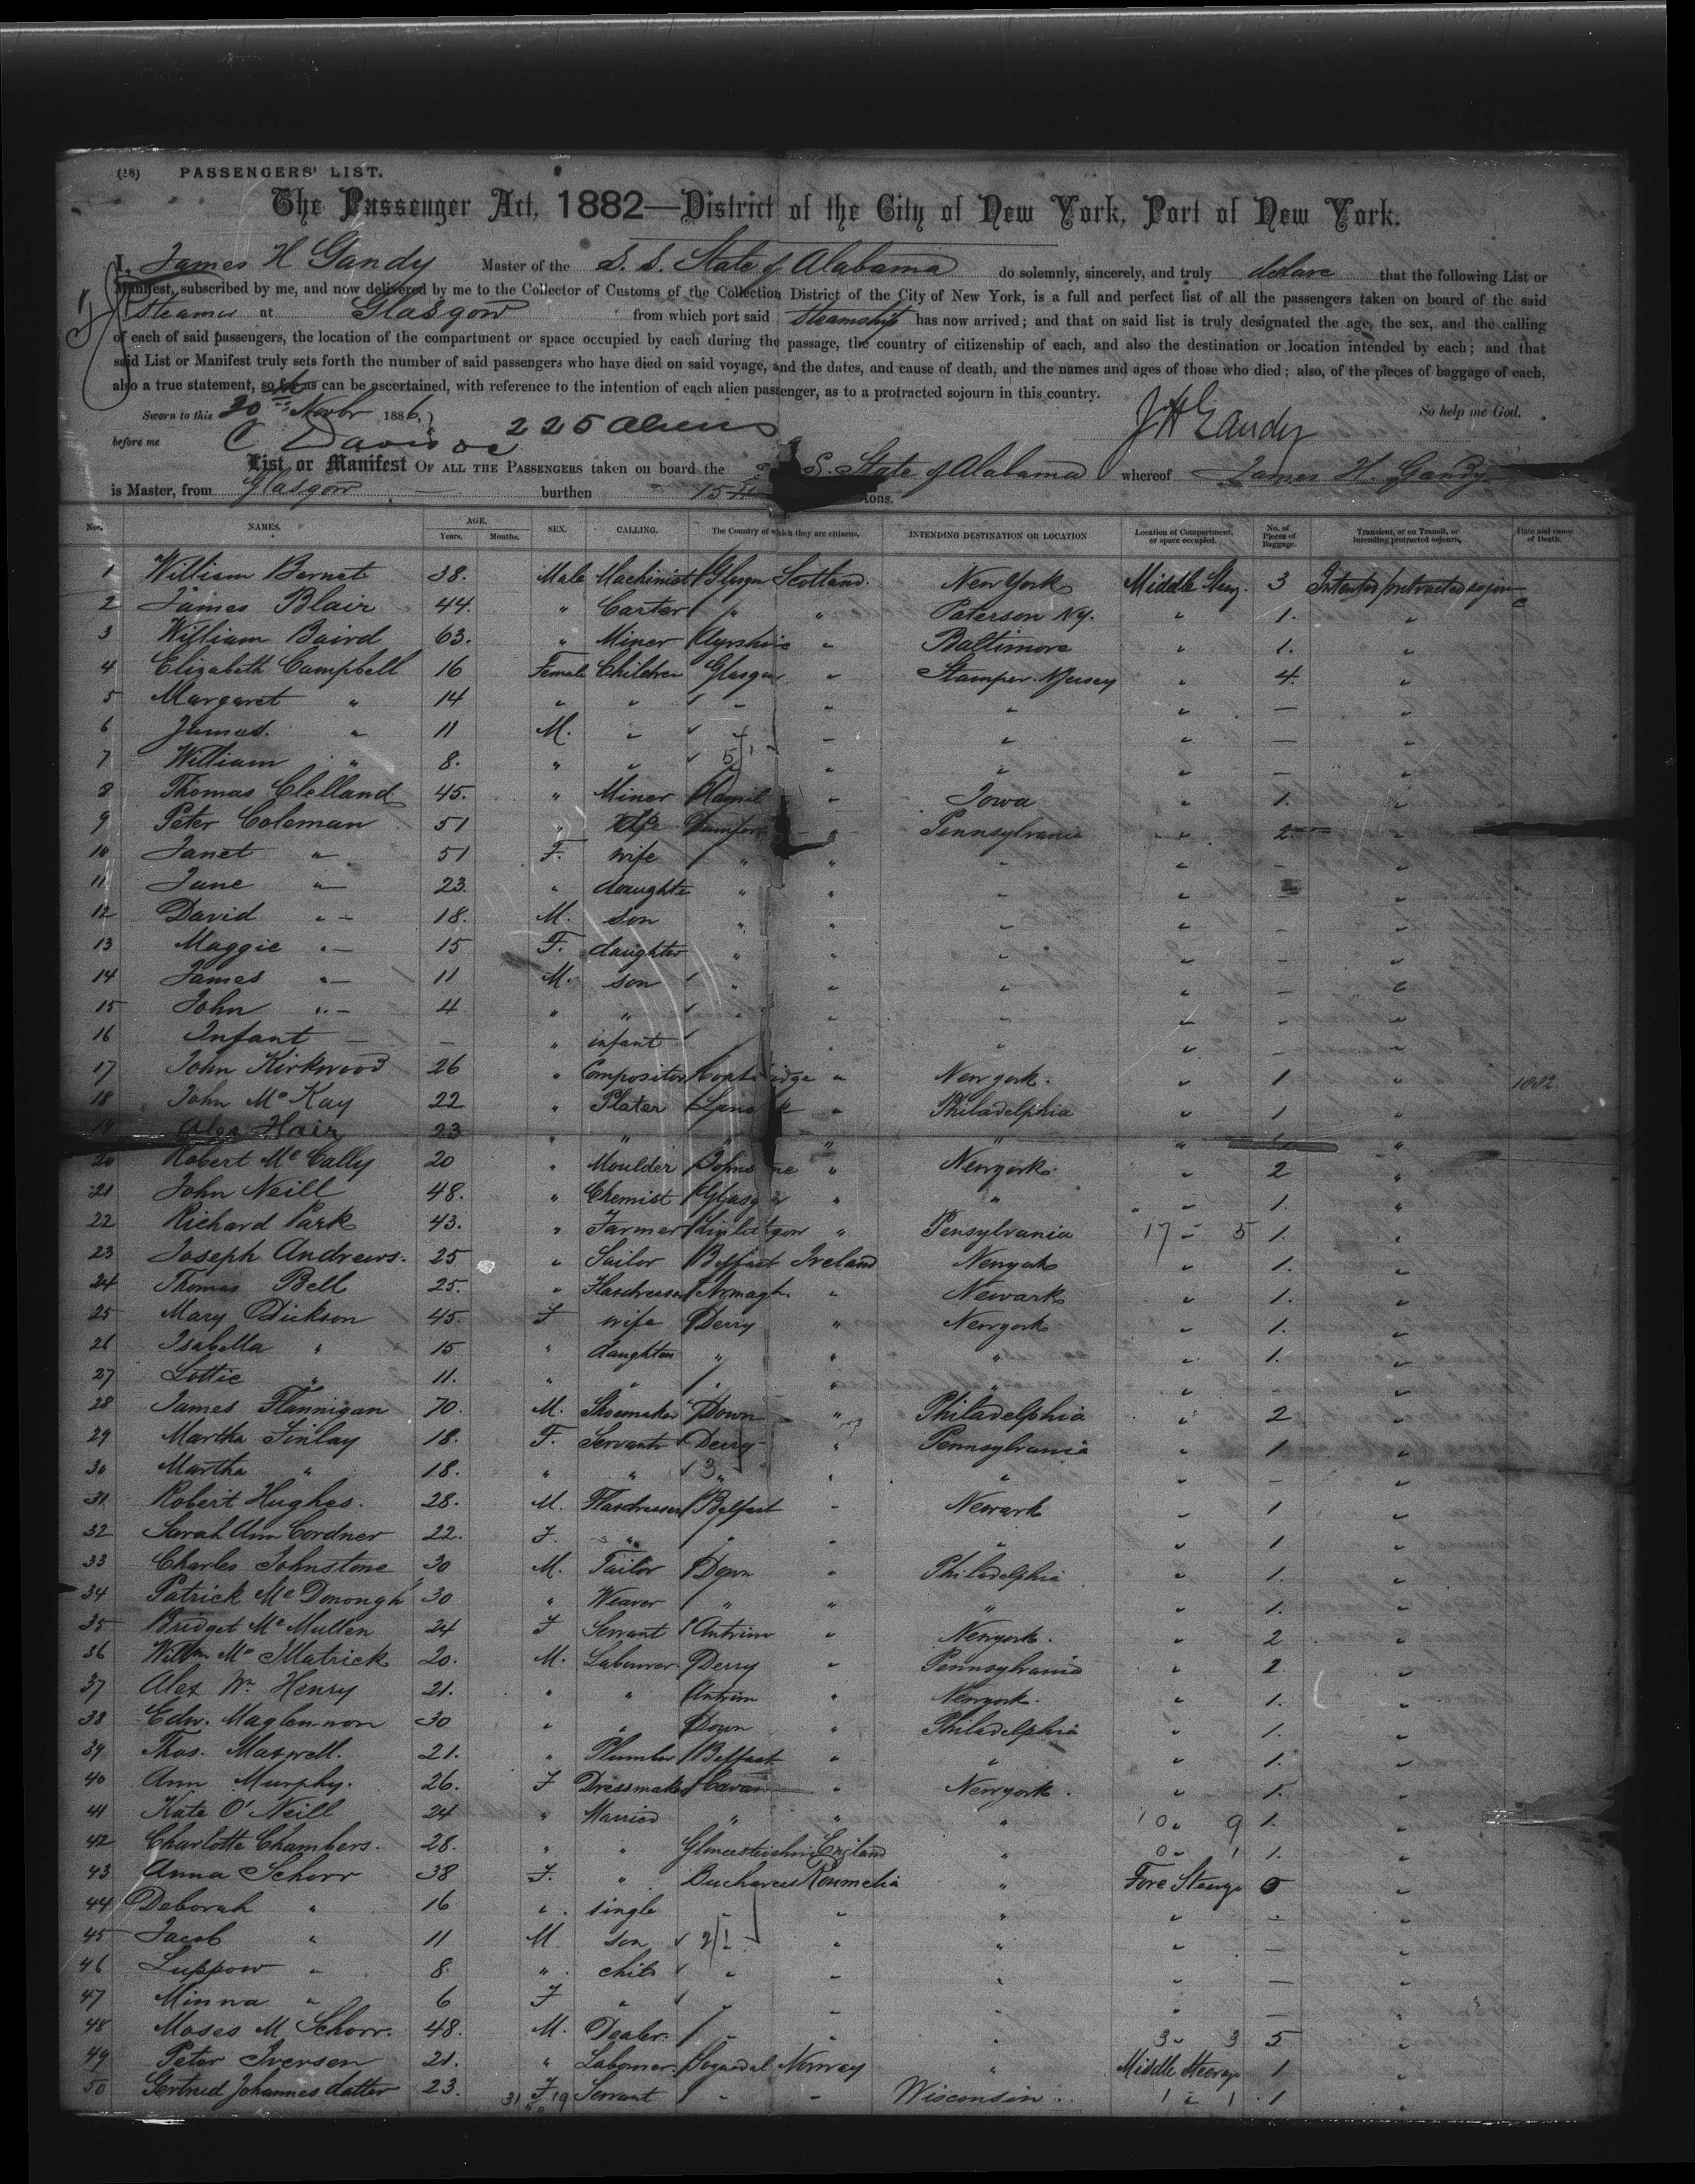 (18) PASSENGERS' LIST.
The Passenger Act, 1882—District of the City of New York, Port of New York.
I, James H Gandy Master of the S. S. State of Alabama do solemnly, sincerely, and truly declare that the following List or
Manifest, subscribed by me, and now delivered by me to the Collector of Customs of the Collection District of the City of New York, is a full and perfect list of all the passengers taken on board of the said
Steamer at Glasgow from which port said Steamship has now arrived; and that on said list is truly designated the age, the sex, and the calling
of each of said passengers, the location of the compartment or space occupied by each during the passage, the country of citizenship of each, and also the destination or location intended by each; and that
said List or Manifest truly sets forth the number of said passengers who have died on said voyage, and the dates, and cause of death, and the names and ages of those who died; also, of the pieces of baggage of each,
also a true statement, so far as can be ascertained, with reference to the intention of each alien passenger, as to a protracted sojourn in this country.
Sworn to this 20th Novbr 1886, So help me God.
before me C Davis 225 Aliens J H Gandy
List or Manifest OF ALL THE PASSENGERS taken on board the S. State of Alabama whereof James H. Gandy
is Master, from Glasgow burthen tons.
Nos. NAMES. AGE. Years. Months. SEX. CALLING. The Country of which they are citizens. INTENDING DESTINATION OR LOCATION Location of Compartment, or space occupied. No. of Pieces of Baggage. Transient, or on Transit, or intending protracted sojourn. Date and cause of Death.
1 William Barnet 38. Male Machinist Glasgow Scotland. New York Middle Steer. 3 Intended protracted sojourn
2 James Blair 44. " Carter " " Paterson NY. " 1. "
3 William Baird 63. " Miner Ayrshire " Baltimore " 1. "
4 Elizabeth Campbell 16 Female Children Glasgow " N Jersey " 4. "
5 Margaret " 14 " " " " " " — "
6 James. " 11 M. " " " " — "
7 William " 8. " " " " " — "
8 Thomas Clelland 45. " Miner Hamil " Iowa " 1. "
9 Peter Coleman 51 " " Pennsylvania " 2 "
10 Janet " 51 F. wife " " " " - "
11 Jane " 23. " daughter " " " " "
12 David " 18. M. son " " " " - "
13 Maggie " 15 F. daughter " " " " - "
14 James " 11 M. son " " " " - "
15 John " 4 " " " " " " - "
16 Infant — — " infant " " " - "
17 John Kirkwood 26 " Compositor Coatbridge " New york. " 1 " 1882
18 John McKay 22 " Plater Lanark " Philadelphia " 1 "
19 Alex Hair 23 " " " " " " "
20 Robert McCally 20 " Moulder Johnstone " Newyork. " 2 "
21 John Neill 48. " Chemist Glasgow " " " 1. "
22 Richard Park 43. " Farmer Linlithgow " Pensylvania 17 - 5 1. "
23 Joseph Andrews. 25 " Sailor Belfast Ireland Newyork " 1. "
24 Thomas Bell 25. " Flaxdresser Armagh. " Newark " 1. "
25 Mary Dickson 45. F wife Derry " Newyork " 1. "
26 Isabella " 15 " daughter " " " " 1. "
27 Lottie " 11. " " " " " " - "
28 James Flannigan 70. M. Shoemaker Down " Philadelphia " 2 "
29 Martha Finlay 18. F. Servants Derry " Pennsylvania " 1 "
30 Martha " 18. " " 3 " " " " - "
31 Robert Hughes. 28. M. Flaxdresser Belfast " Newark " 1 "
32 Sarah Ann Cordner 22. F. " " " " " 1 "
33 Charles Johnstone 30 M. Tailor Down " Philadelphia " 1. "
34 Patrick McDonough 30 " Weaver " " " " 1. "
35 Bridget McMullen 24 F Servant Antrim " Newyork. " 2 "
36 Willm Mc 20. M. Labourer Derry " Pennsylvania " 2. "
37 Alex Wm Henry 21. " " Antrim " Newyork. " 1. "
38 Edw. Maglennon 30 " " Down " Philadelphia " 1. "
39 Thos. Maxwell. 21. " Plumber Belfast " " " 1. "
40 Ann Murphy. 26. F Dressmaker Cavan " Newyork. " 1. "
41 Kate O'Neill 24 " Married " " " 10 9 1. "
42 Charlotte Chambers. 28. " " Gloucestershire England " 0 1 1. "
43 Anna Schorr 38 F. " Bucharest Roumelia " Fore Steerage 5 "
44 Deborah " 16 " single " " " " - "
45 Jacob " 11 M son 2/1 " " " — "
46 Luppow " 8. " child " " " " — "
47 Minna " 6 F " " " " " — "
48 Moses M Schorr. 48. M. Dealer. " " " 3 - 3 5 "
49 Peter Iversen 21. " Labourer. Sogndal Norway " Middle Steerage 1 "
50 Gertrud Johannes datter 23. 31 F 19 Servant " " Wisconsin. 1 - 1 1 "